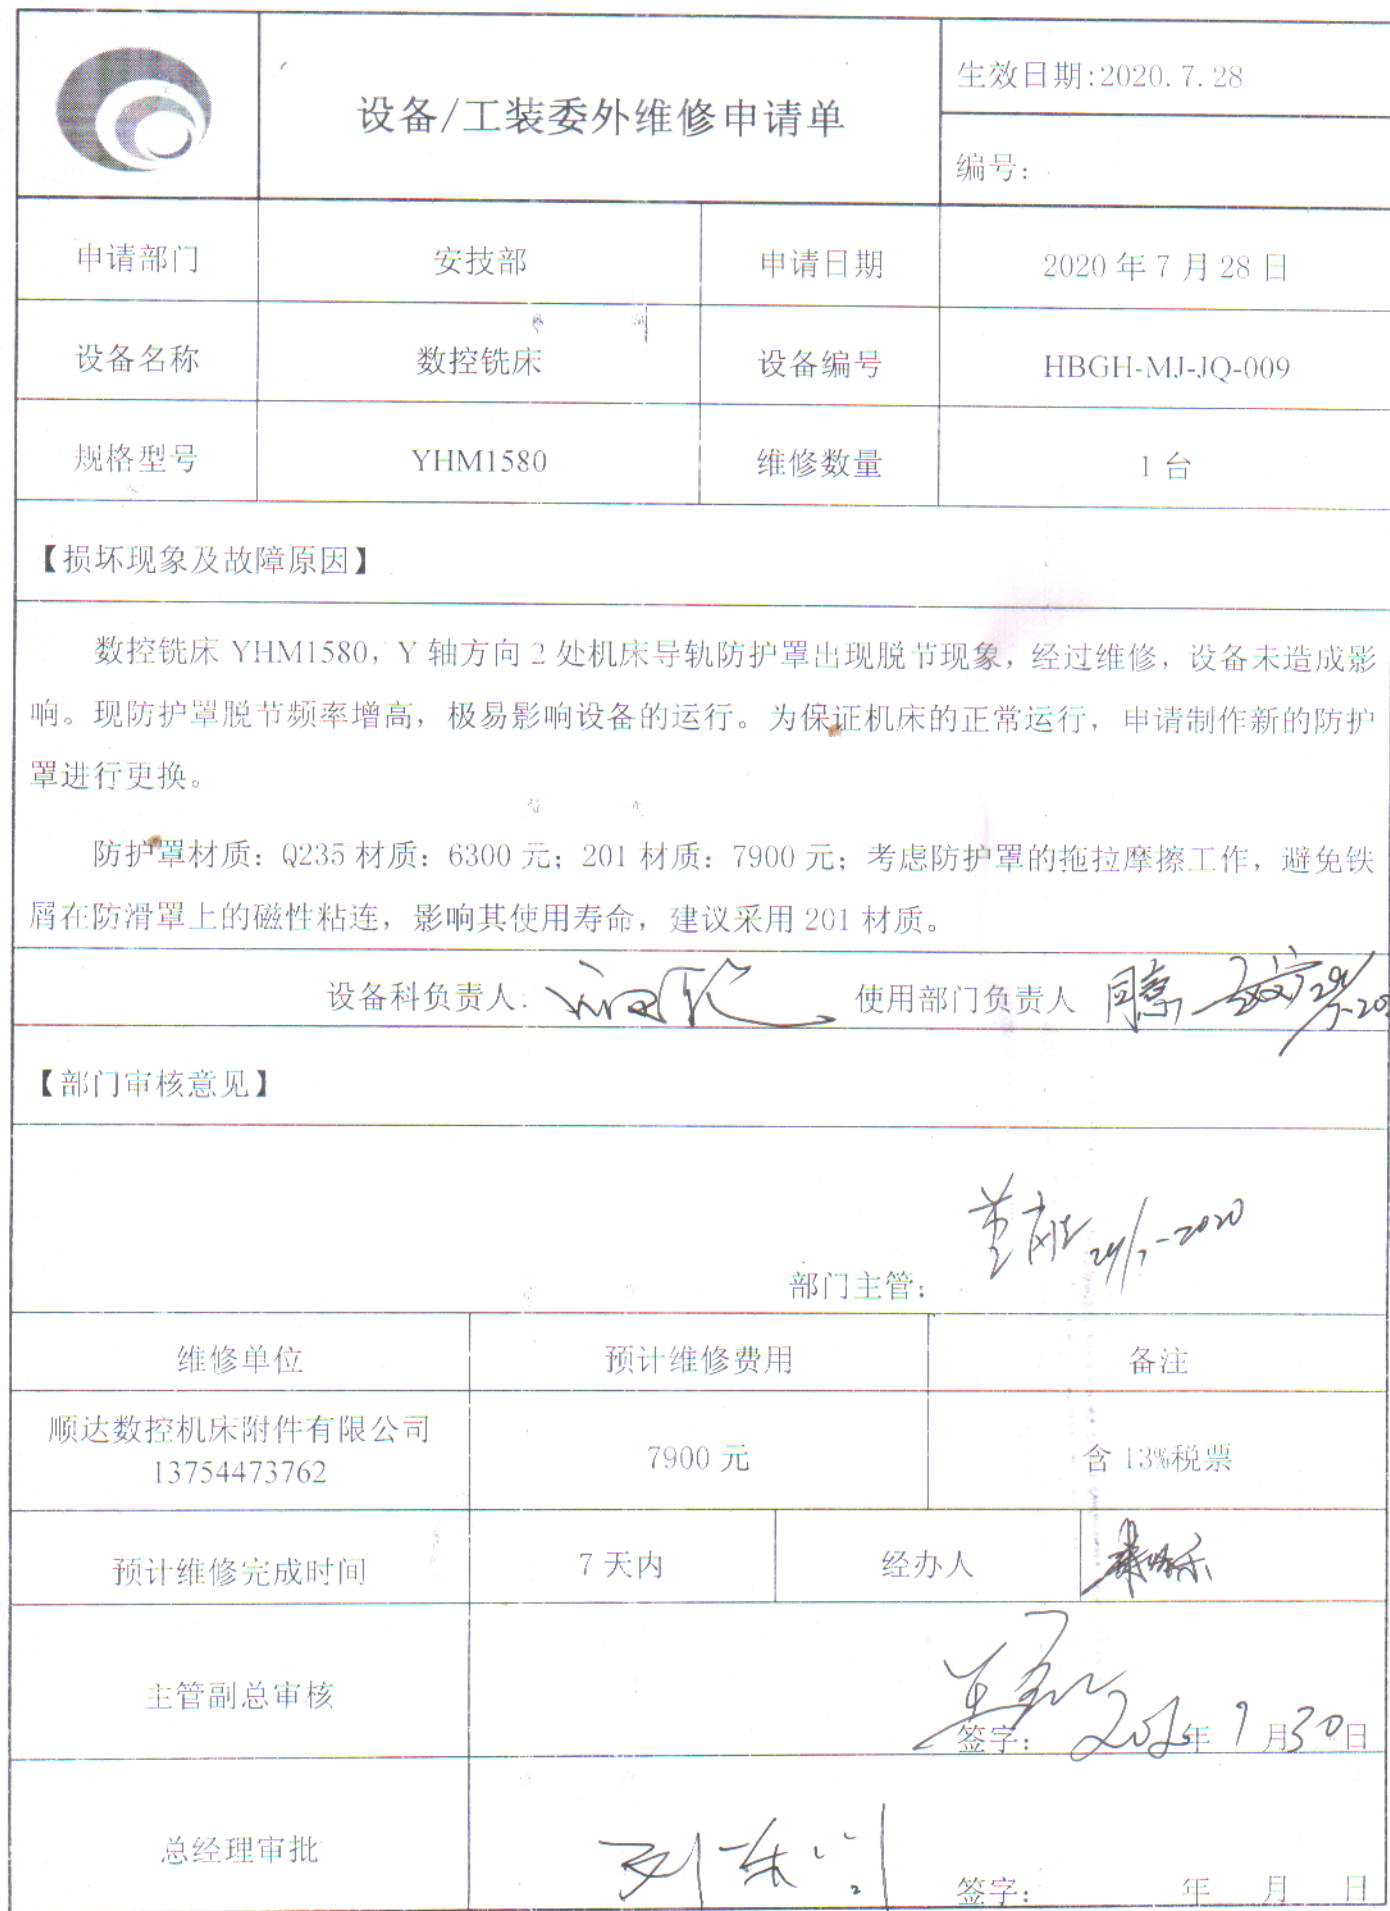 设备/工装委外维修申请单
生效日期:2020.7.28
编号:
申请部门 安技部 申请日期 2020 年 7 月 28 日
设备名称 数控铣床 设备编号 HBGH-MJ-JQ-009
规格型号 YHM1580 维修数量 1 台
【损坏现象及故障原因】
数控铣床 YHM1580, Y 轴方向 2 处机床导轨防护罩出现脱节现象, 经过维修, 设备未造成影
响。现防护罩脱节频率增高, 极易影响设备的运行。为保证机床的正常运行, 申请制作新的防护
罩进行更换。
防护罩材质: Q235 材质: 6300 元; 201 材质: 7900 元; 考虑防护罩的拖拉摩擦工作, 避免铁
屑在防滑罩上的磁性粘连, 影响其使用寿命, 建议采用 201 材质。
设备科负责人: 使用部门负责人 同意
【部门审核意见】
部门主管: 29/7-2020
维修单位 预计维修费用 备注
顺达数控机床附件有限公司
13754473762
7900 元
含 13%税票
预计维修完成时间 7 天内 经办人
主管副总审核
签字: 年 7 月 30 日
总经理审批
签字: 年 月 日